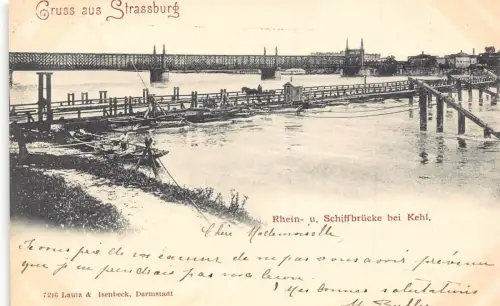 Gruss aus Strassburg
Rhein- u. Schiffbrücke bei Kehl.
Chère Mademoiselle
de m'a pas vous avoir prévenu
que je ne prendrais pas ma leçon.
Mes bonnes salutations
M.
7216 Lautz & Isenbeck, Darmstadt